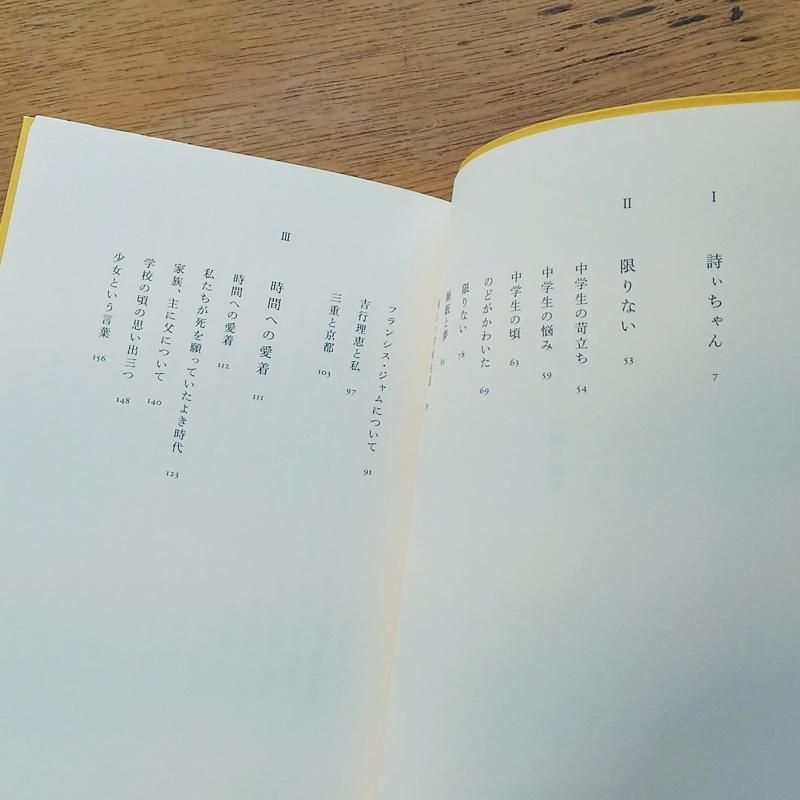 I
詩ぃちゃん 7
II
限りない 53
中学生の苛立ち 54
中学生の悩み 59
中学生の頃 63
のどがかわいた 69
限りない 78
睡眠と夢 85
フランシス・ジャムについて 91
吉行理恵と私 97
三重と京都 103
III
時間への愛着 111
時間への愛着 112
私たちが死を願っていたよき時代 123
家族、主に父について 140
学校の頃の思い出三つ 148
少女という言葉 156